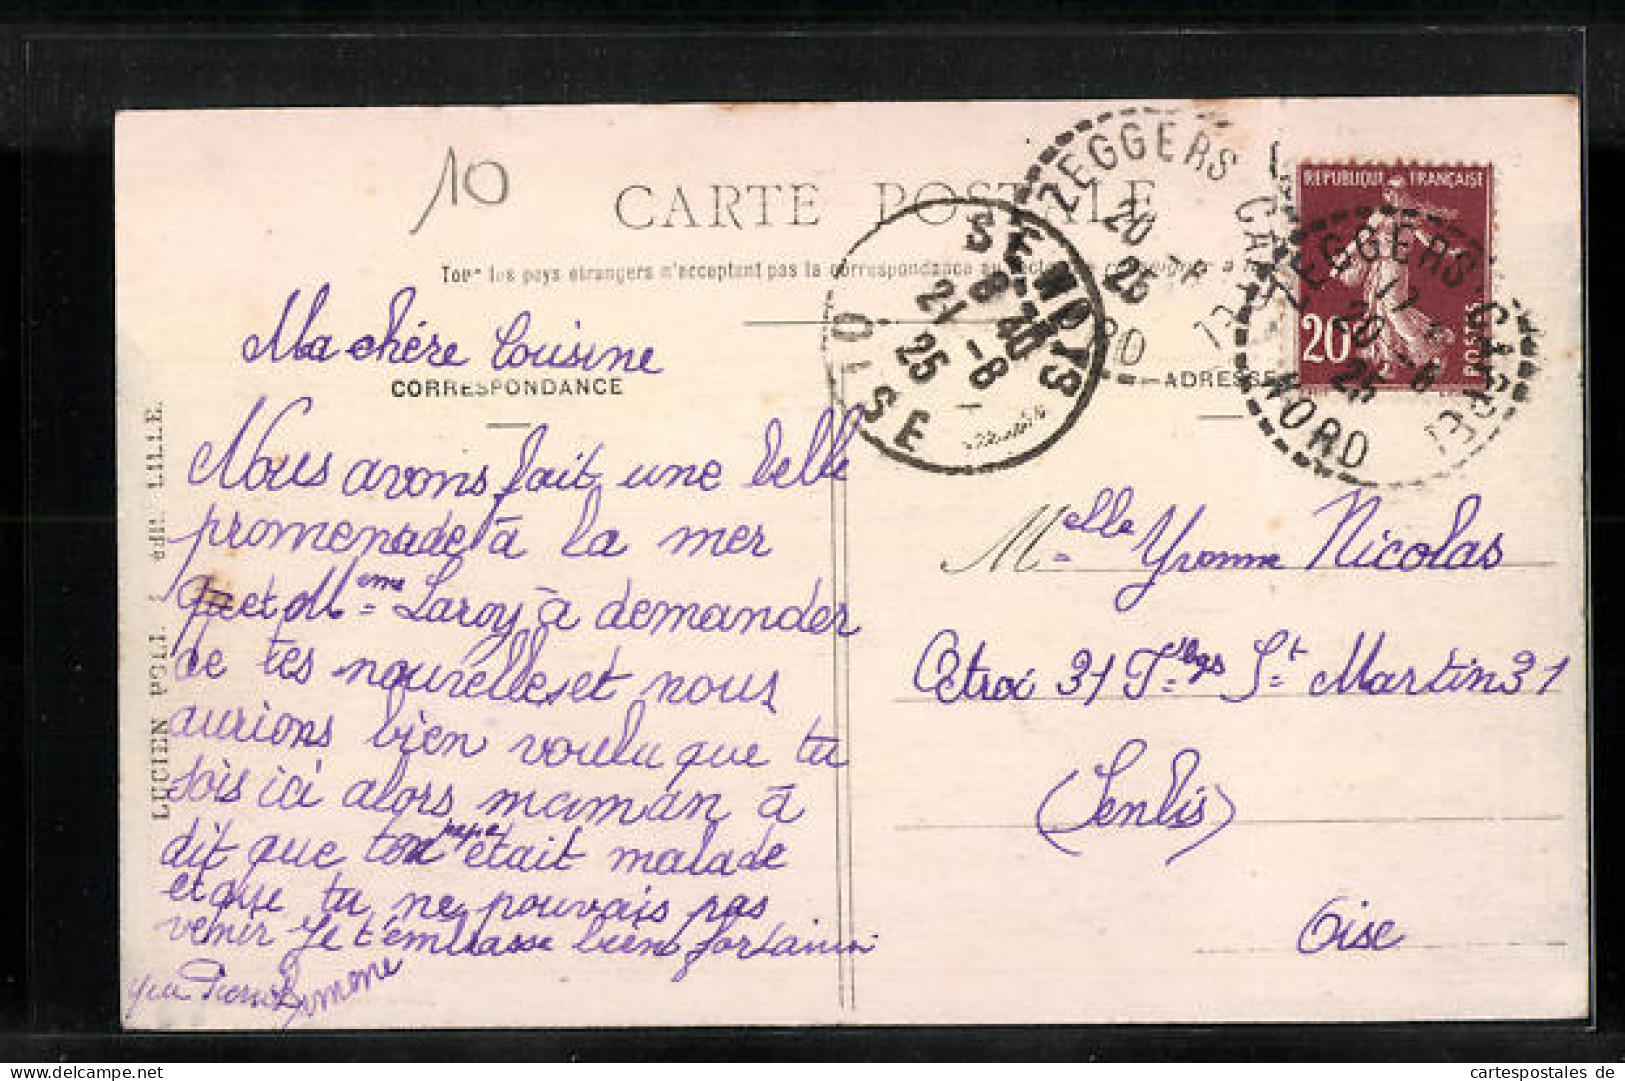 10
CARTE POSTALE
Tous les pays étrangers n'acceptent pas la correspondance au recto
Ma chère Cousine
CORRESPONDANCE
Nous avons fait une belle
promenade à la mer
et Mme Laroy à demander
de tes nouvelles et nous
aurions bien voulu que tu
sois ici alors maman à
dit que ton papa était malade
et que tu ne pouvais pas
venir Je t'embrasse bien
Simone
LUCIEN POLLET édit. LILLE.
ZEGGERS CAPPEL
20
25
NORD
SENLIS
8 40
21 -8
25
OISE
REPUBLIQUE FRANÇAISE
20c
POSTES
ZEGGERS CAPPEL
17
20 -8
25
NORD
ADRESSE
Melle Yvonne Nicolas
Octroi 31 Fbgs St Martin 31
(Senlis)
Oise
cartespostales de